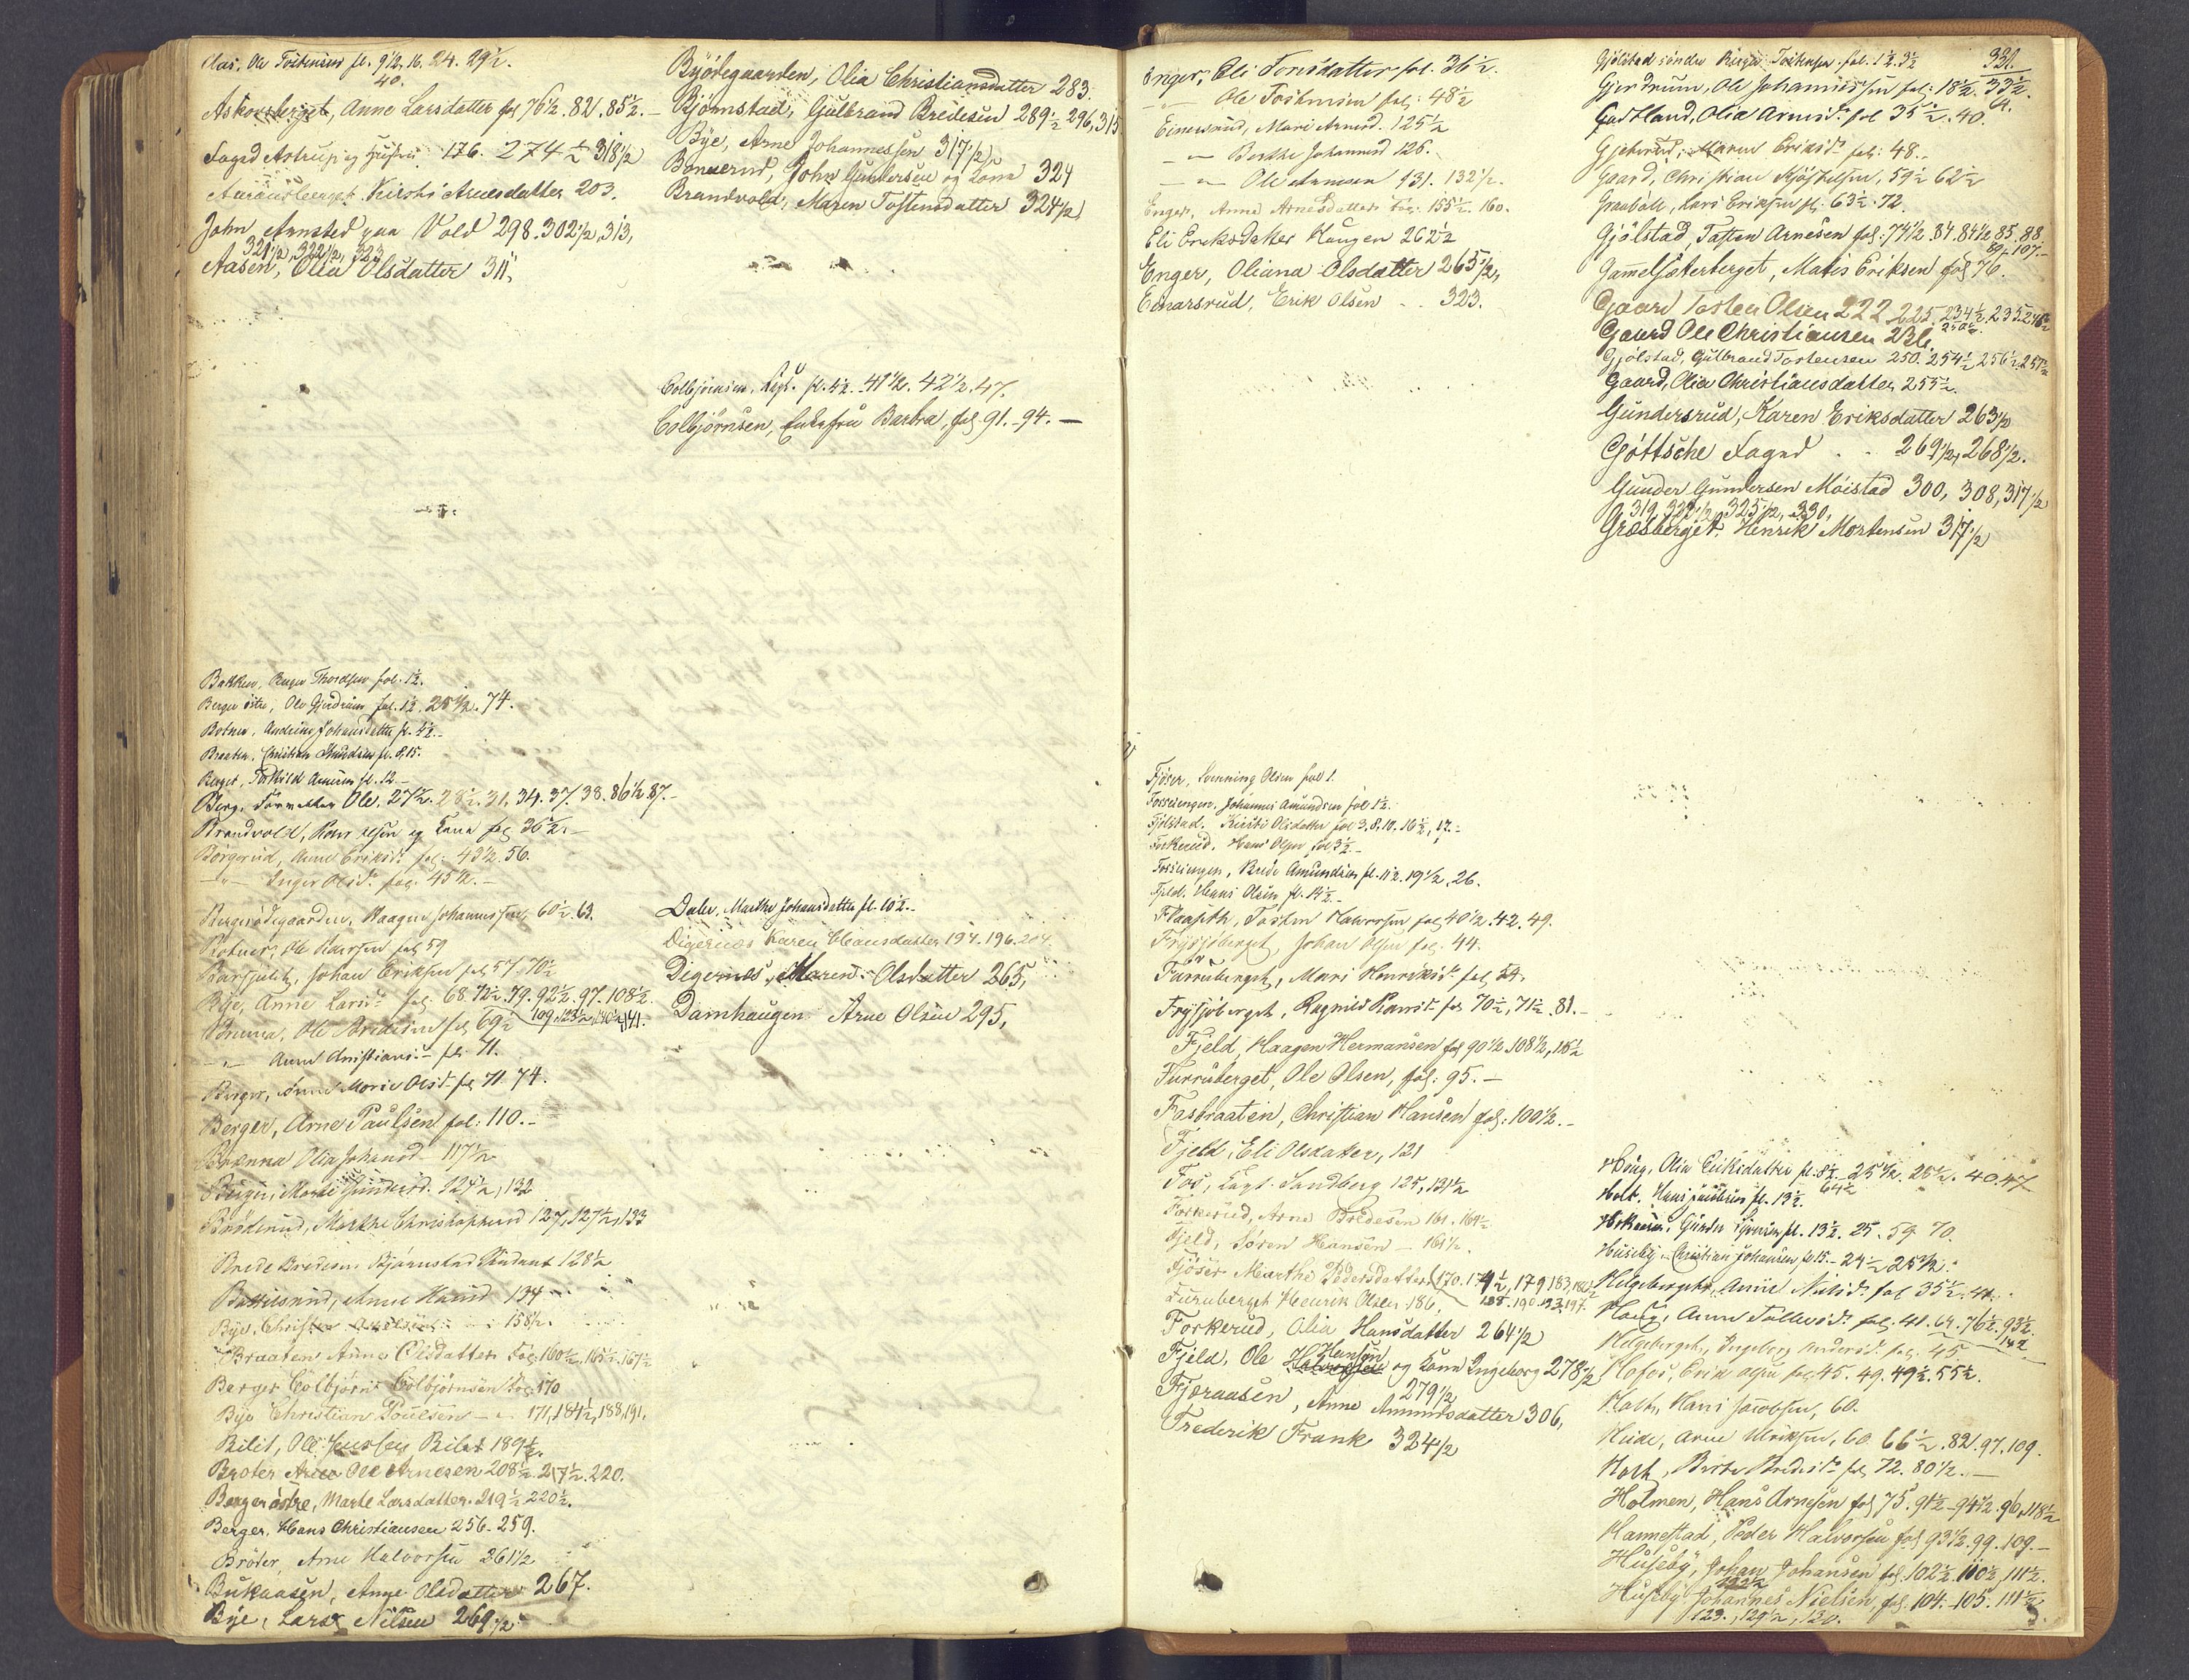 Aas, Ole Tostensen fl. 9½, 16. 24. 29½.
40.
Askorsberget, Anne Larsdatter fol 76½. 82. 85½. —
Foged Astrup og Hustru 176. 274½ 318½
Kirsti Arnesdatter 203.
John Arnsted paa Vold 298. 302½, 313,
321½, 322½, 323
Aasen, Olia Olsdatter 311,
Bakken, Thordsen fol. 1½.
Berger østre, Ole Gjerdrum fol. 1½. 25½. 74.
Botner, Andrine Johansdatter fl. 4½. -
Braaten, Christian Amundsen fl. 8, 15.
Berget, Torkild Arnesen fl. 12 -
Berg, Ole, 27½. 28½. 31. 34. 37. 38. 86½ 87. -
Brandvold, og Kone fol 36½. -
Børgerud, Anne Eriksd: fol: 43½. 56.
— " — Inger Olsd: fol: 45½. -
Bergerødegaarden, Haagen Johannesen, 60½. 63.
Botner, Ole Pedersen fol 59
Johan Eriksen fol 57. 70½
Bye, Anne Larsd: fol: 68. 72½. 79. 92½. 97. 108½
109, 123½, 140½, 141.
Brenna, Ole Bredesen fol 69½
— " — Anne Christiansd: fol: 71.
Berger, Anne Marie Olsd: fol 71. 74.
Berger, Arne Paulsen fol: 110. -
Brenna Olia Johansd. 117½
Berger, Mari Gundersd. 124½, 132
Marthe Christophersd 127, 127½, 133
Brede Bredesen Bjørnstad Student 128½
Anne Hansd 134
Bye, Christen 158½.
Braaten Anne Olsdatter Fol: 160½. 165½. 167½
Berger Colbjørn Colbjørnsen Fol: 170
Bye Christian Poulsen — " — 171, 184½, 188, 191.
Bilit, Ole Bilet 189½.
Brøter Ole Arnesen 208½. 217½. 220.
Berger østre, Marte Larsdatter. 219½ 220½.
Berger, Hans Christiansen 256. 259.
Brøter, Arne Halvorsen 261½
Bukaasen, Anne Olsdatter 267.
Bye, Lars Nilsen 269½
Byødegaarden, Olia Christiansdatter 283.
Bjørnstad, Gulbrand Bredesen 289½ 296, 315
Bye, Arne Johannessen 317½,
Bonnerud, John Gundersen og Kone 324
Brandvold, Maren Tostensdatter 324½
Colbjørnsen, Capt. fl. 4½. 41½. 42½, 47.
Colbjørnsen, Enkefru Barbra, fol 91. 94. —
Dalen, Marthe Johansdatter fl. 10½. -
Digernæs Karen Hansdatter 194. 196. 204.
Digernæs, Maren Olsdatter 265,
Damhaugen Arne Olsen 295,
Enger, Eli Torsdatter fol. 36½.
— " — Ole Tostensen fol: 48½
Einersrud, Mari Arnesd. 125½
— " — Berthe Johannesd 126.
— " — Ole Arnesen 131. 132½.
Enger, Anne Arnesdatter Fol: 155½. 160.
Eli Eriksdatter Haugen 262½
Enger, Oliana Olsdatter 265½,
Einarsrud, Erik Olsen . . 323.
Fjøser, Svenning Olsen fol 1.
Fosseengen, Johannes Amundsen fol 1½.
Fjølstad, Kirsti Olsdatter fol 3. 8. 10. 16½, 17. -
Forkerud, Hans Olsen, fol 3½ -
Fosseengen, Brede Amundsen fl. 11½. 19½. 26.
Fjeld, Hans Olsen fl. 14½ -
Tosten Halvorsen fol 40½. 42. 49.
Frysjøberget, Johan Olsen fol: 44.
Furruberget, Mari Henriksd: fol 54.
Frysjøberget, Ragnild Hansd: fol 70½, 71½. 81. -
Fjeld, Haagen Hermansen fol 90½. 108½, 115½
Furruberget, Ole Olsen, fol: 95. —
Fasbraaten, Christian Hansen fol: 100½. -
Fjeld, Eli Olsdatter, 121
Fos, Capt. Sandberg 125, 131½
Forkerud, Arne Bredesen 161. 164½.
Fjeld, Søren Hansen — 161½.
Fjøser Marthe Pedersdatter (170. 174½, 179 183, 184½
188. 190. 193. 197.
Furuberget Henrik Olsen 186,
Forkerud, Olia Hansdatter 264½
Fjeld, Ole Hansen og Kone Ingeborg 278½
279½
Fjæraasen, Anne Amundsdatter 306,
Frederik Frank 324½
331.
Gjølstad søndre Tostensen. fol. 1½. 3½
Gjerdrum, Ole Johannessen fol: 18½. 33½.
64.
Gadtland, Olia Arnesd: fol 35½. 40.
Maren Eriksd: fol: 48.
Gaard, Christian Kjøstelsen, 59½ 62½
Graabøll, Lars Eriksen fl: 63½. 72.
Gjølstad, Tosten Arnesen fol: 74½. 84. 84½ 85. 88
89. 107. -
Gammelsæterberget, Matis Eriksen fol 76.
Gaard Tosten Olsen 222. 225. 234½. 235. 246½
250½.
Gaard Ole Christiansen 236.
Gjølstad, Gulbrand Tostensen 250. 254½ 256½. 257½
Gaard, Olia Christiansdatter 255½.
Gundersrud, Karen Eriksdatter 263½
Gøttsche Foged . . 269½, 268½.
Gunder Gundersen Moistad 300, 308, 317½
319, 322½, 325½, 330,
Græsberget, Henrik Mortensen 317½
Haug, Olia Eriksdatter fl. 8½. 25½. 26½. 40. 47
64½
Holt, Hans Jacobsen fl. 13½.
Gunder fl. 13½. 25. 59. 70.
Huseby, Christian Johansen fl. 15. - 24½ 25½.
Helgeberget, Anne Nielsd: fol 35½. 41.
Haug, Anne Tollevsd: fol: 41. 64. 76½. 93½.
142
Helgeberget, Ingeborg Andersd. fol: 45
Hofos, Erik Olsen fol 45. 49. 49½. 55½.
Holt, Hans Jacobsen, 60.
Heide, Arne Ulriksen, 60. 66½. 82. 97. 109.
Holt, Berte Bredesd: fol 72. 80½. —
Holmen, Hans Arnesen fol 75. 91½ - 94½. 96, 118½
Hammestad, Peder Halvorsen fol 93½. 99. 109. -
Huseby, Johan Johansen fol: 102½. 110½, 111½.
Huseby Johannes Nielsen, fol: 104. - 105. 111½
123., 129½, 130.